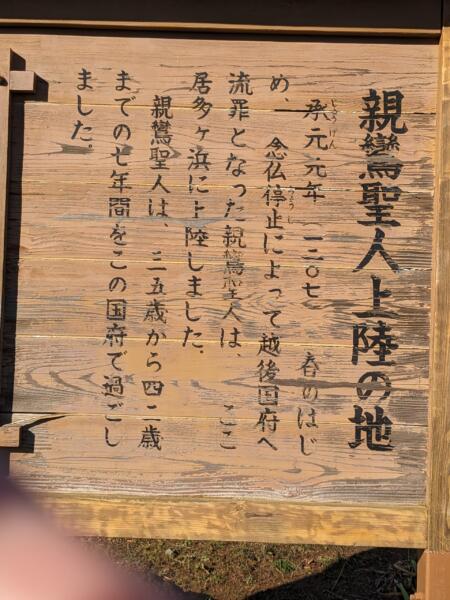 親鸞聖人上陸の地
承元元年(一二〇七 春のはじ
じょうげん
め、念仏停止によって越後国府へ
ちょうじ
流罪となった親鸞聖人は、ここ
居多ヶ浜に上陸しました。
親鸞聖人は、三五歳から四二歳
までの七年間をこの国府で過ごし
ました。